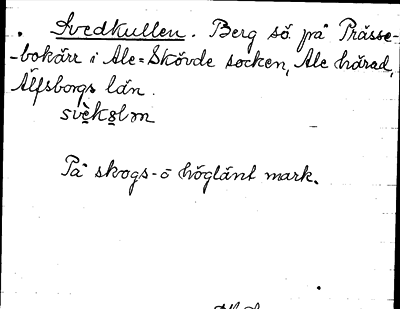 Svedkullen. Berg sö på Prässe-
-bokärr i Ale-Skövde socken, Ale härad,
Älfsborgs län.
svèkₒlən
På skogs- o höglänt mark.